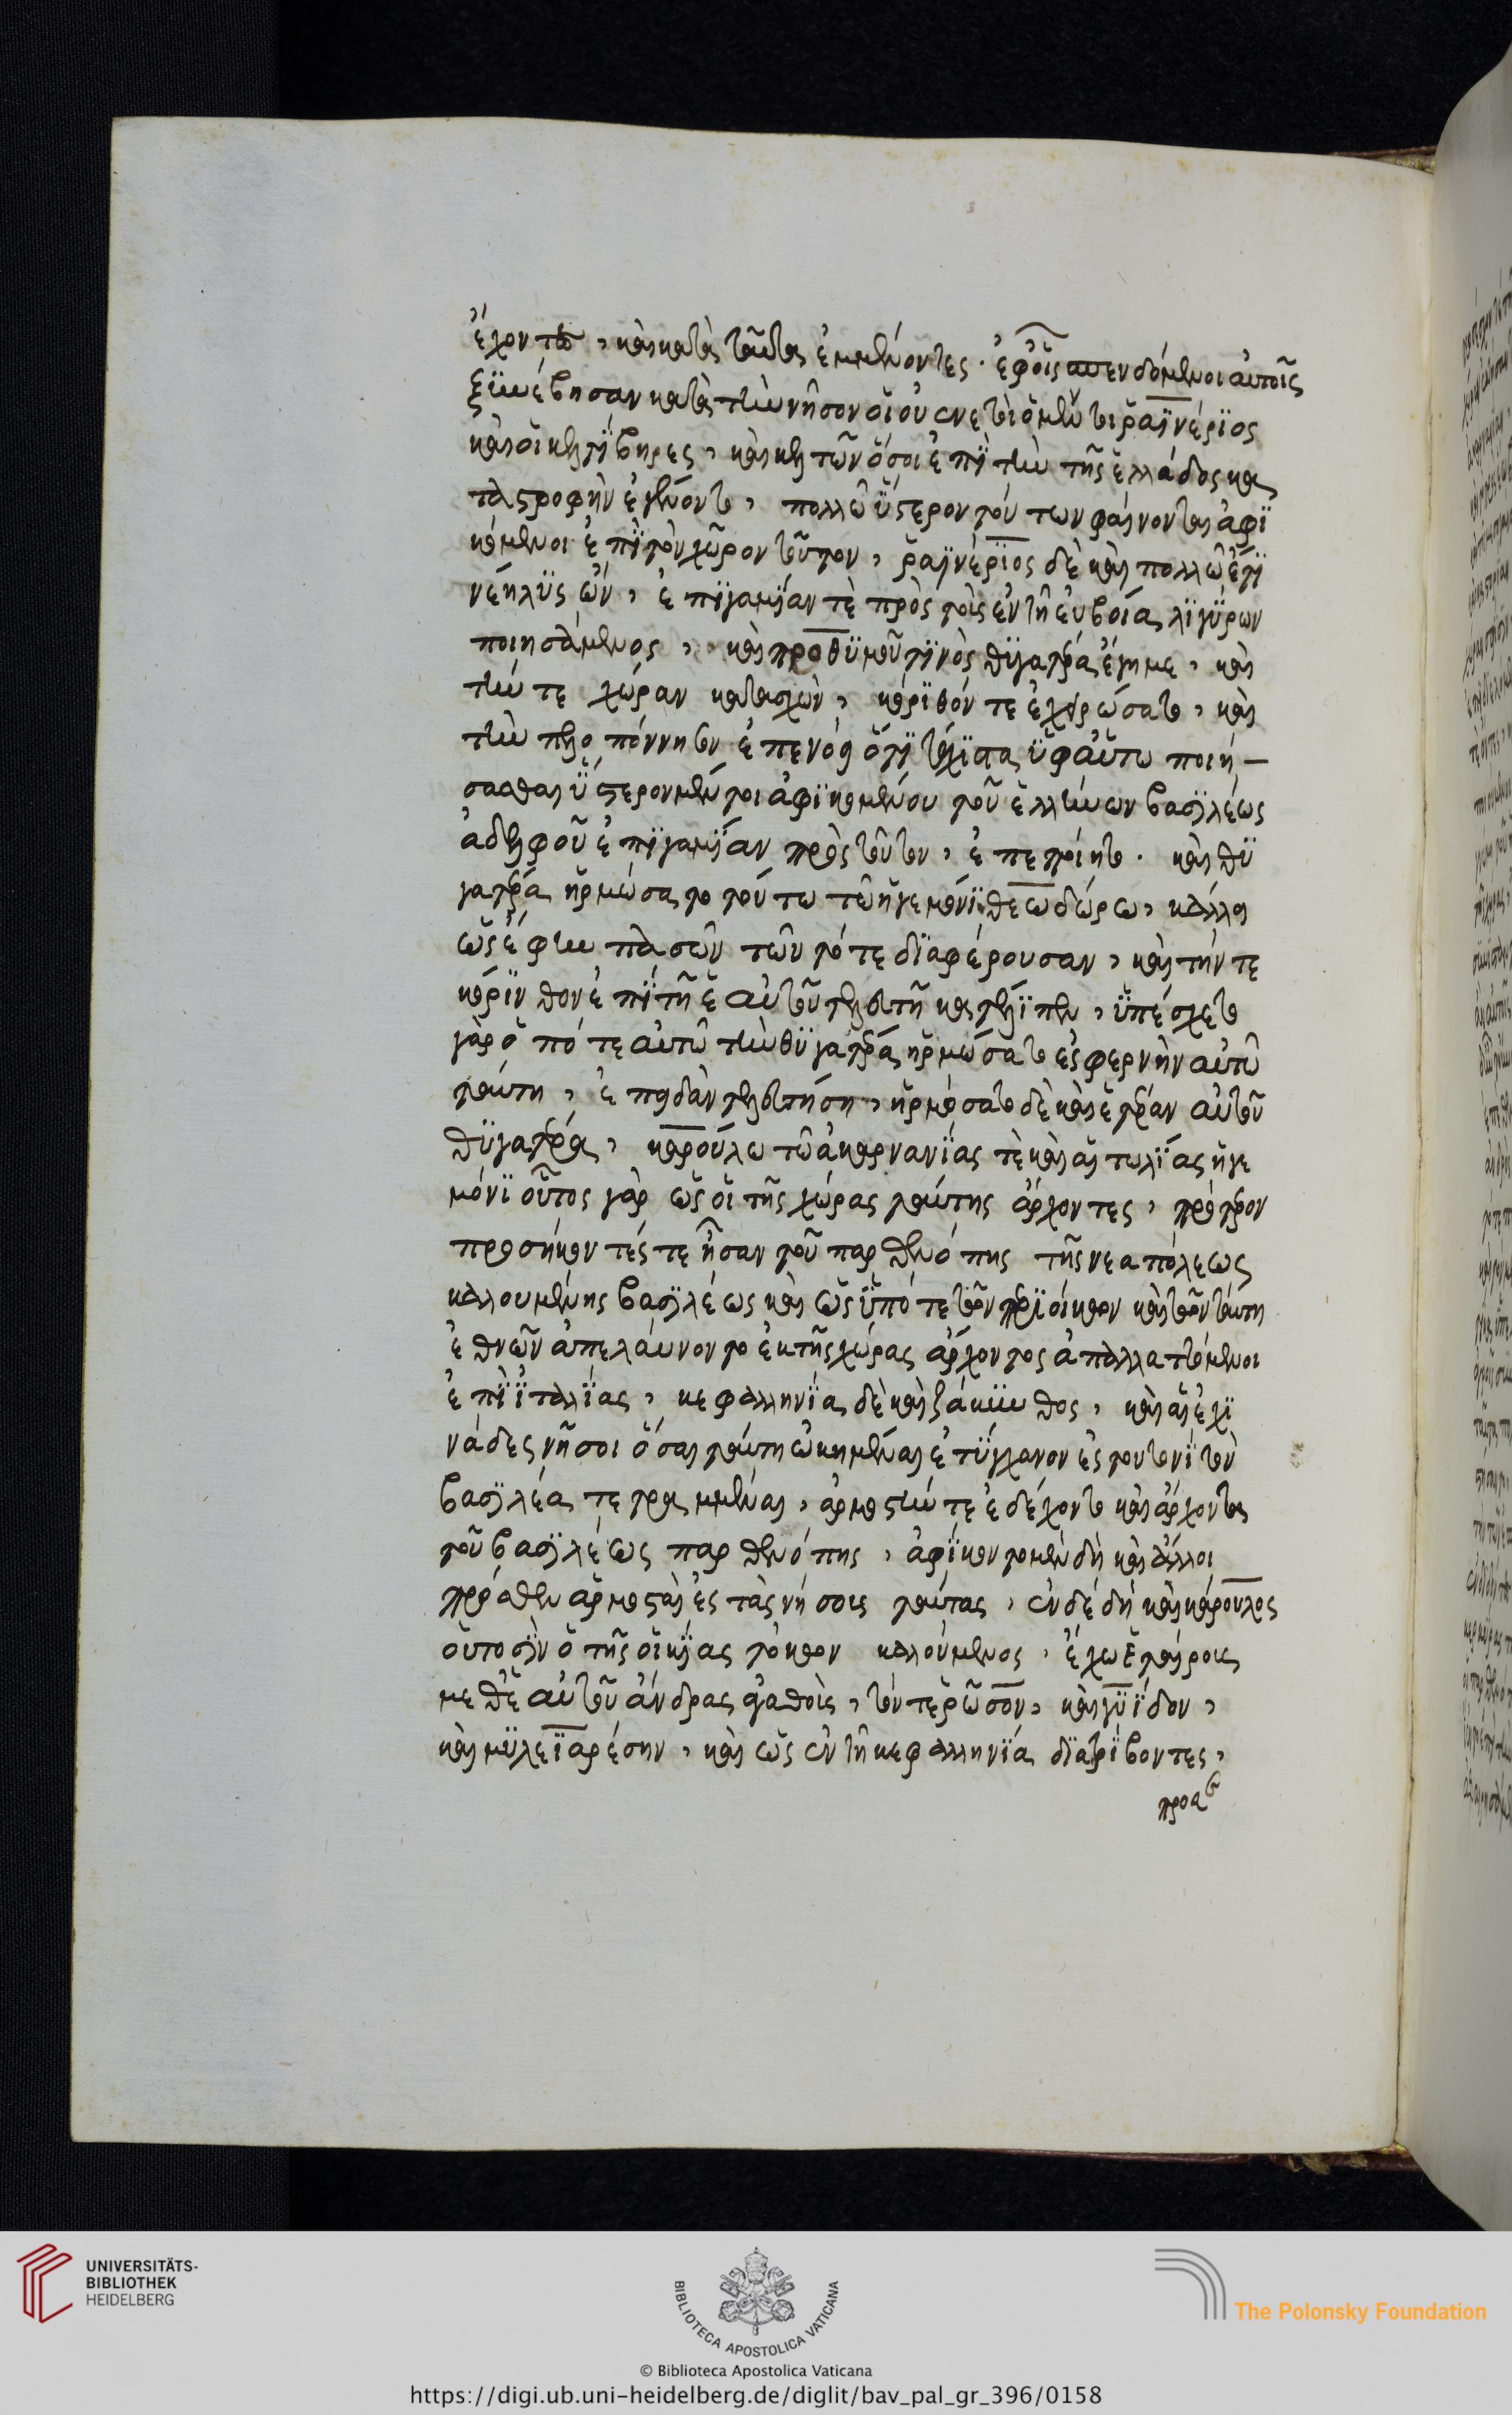 ἔχοντο, καὶ κατὰ ταῦτα ἐμμένοντες. ἐφ' οἷς σπενδόμενοι αὐτοῖς
ξϋνέβησαν κατὰ τὴν νῆσον οἱ οὐενετοὶ ὁ μέν τοι ῥαϊνέριος
καὶ οἱ κελτίβηρες, καὶ κελτῶν ὅσοι ἐπὶ τὴν τῆς ἑλλάδος κα
ταστροφὴν ἐγένοντο, πολλῶ ὕστερον τούτων φαίνονται ἀφι
κόμενοι ἐπὶ τὸν χῶρον τοῦτον, ῥαϊνέριος δὲ καὶ πολλῶ ἔτι
νέηλυς ὤν, ἐπιγαμίαν τὲ πρὸς τοὺς ἐν τῆ εὐβοία λιγύρων
ποιησάμενος, καὶ προθύμου τινὸς θυγατέρα ἔγημε, καὶ
τήν τε χώραν κατασχών, κόρινθόν τε ἐχειρώσατο, καὶ
τὴν πελοπόννησον ἐπενόει ὅτι τάχιστα ὑφ' αὑτῶ ποιή-
σασθαι ὕστερον μέν τοι ἀφικομένου τοῦ ἑλλήνων βασιλέως
ἀδελφοῦ ἐπιγαμίαν πρὸς τοῦτον, ἐπεποίητο. καὶ θυ
γατέρα ἡρμώσατο τούτω τῶ ἡγεμόνι θεωδώρω, κάλλει
ὡς ἔφην πασῶν τῶν τότε διαφέρουσαν, καὶ τήν τε
κόρινθον ἐπὶ τῆ ἑαυτοῦ τελευτῆ κατέλιπεν, ὑπέσχετο
γὰρ ὁπότε αὐτῶ τὴν θυγατέρα ἡρμώσατο ἐς φερνὴν αὐτῶ
ταύτη, ἐπειδὰν τελευτήση, ἡρμόσατο δὲ καὶ ἑτέραν αὐτοῦ
θυγατέρα, καρούλω τῶ ἀκαρνανίας τὲ καὶ αἰτωλίας ἡγε
μόνι οὗτος γὰρ ὡς οἱ τῆς χώρας ταύτης ἄρχοντες, πρότερον
προσήκοντές τε ἦσαν τοῦ παρθενόπης τῆς νεαπόλεως
καλουμένης βασιλέως καὶ ὡς ὑπό τε τῶν περιοίκων καὶ τῶν ταύτη
ἐθνῶν ἀπελαύνοντο ἐκ τῆς χώρας ἄρχοντος ἀπαλλαττόμενοι
ἐπὶ ἰταλίας, κεφαλληνία δὲ καὶ ζάκυνθος, καὶ αἱ ἐχι
νάδες νῆσοι ὅσαι ταύτη ὠκημέναι ἐτύγχανον ἐς τουτονὶ τὸν
βασιλέα τετραμμέναι, ἁρμοστήν τε ἐδέχοντο καὶ ἄρχοντα
τοῦ βασιλέως παρθενόπης, ἀφίκοντο μὲν δὴ καὶ ἄλλοι
πρόσθεν ἁρμοσταὶ ἐς τὰς νήσους ταύτας, ἐν δὲ δὴ καὶ κάρουλος
οὗτος ἦν ὁ τῆς οἰκίας τόκκων καλούμενος, ἔχων ἑταίρους
μεθ' ἑαυτοῦ ἄνδρας ἀγαθοὺς, τόν τε ῥῶσον, καὶ γυΐδον,
καὶ μυλειαρέσην, καὶ ὡς ἐν τῆ κεφαλληνία διατρίβοντες,